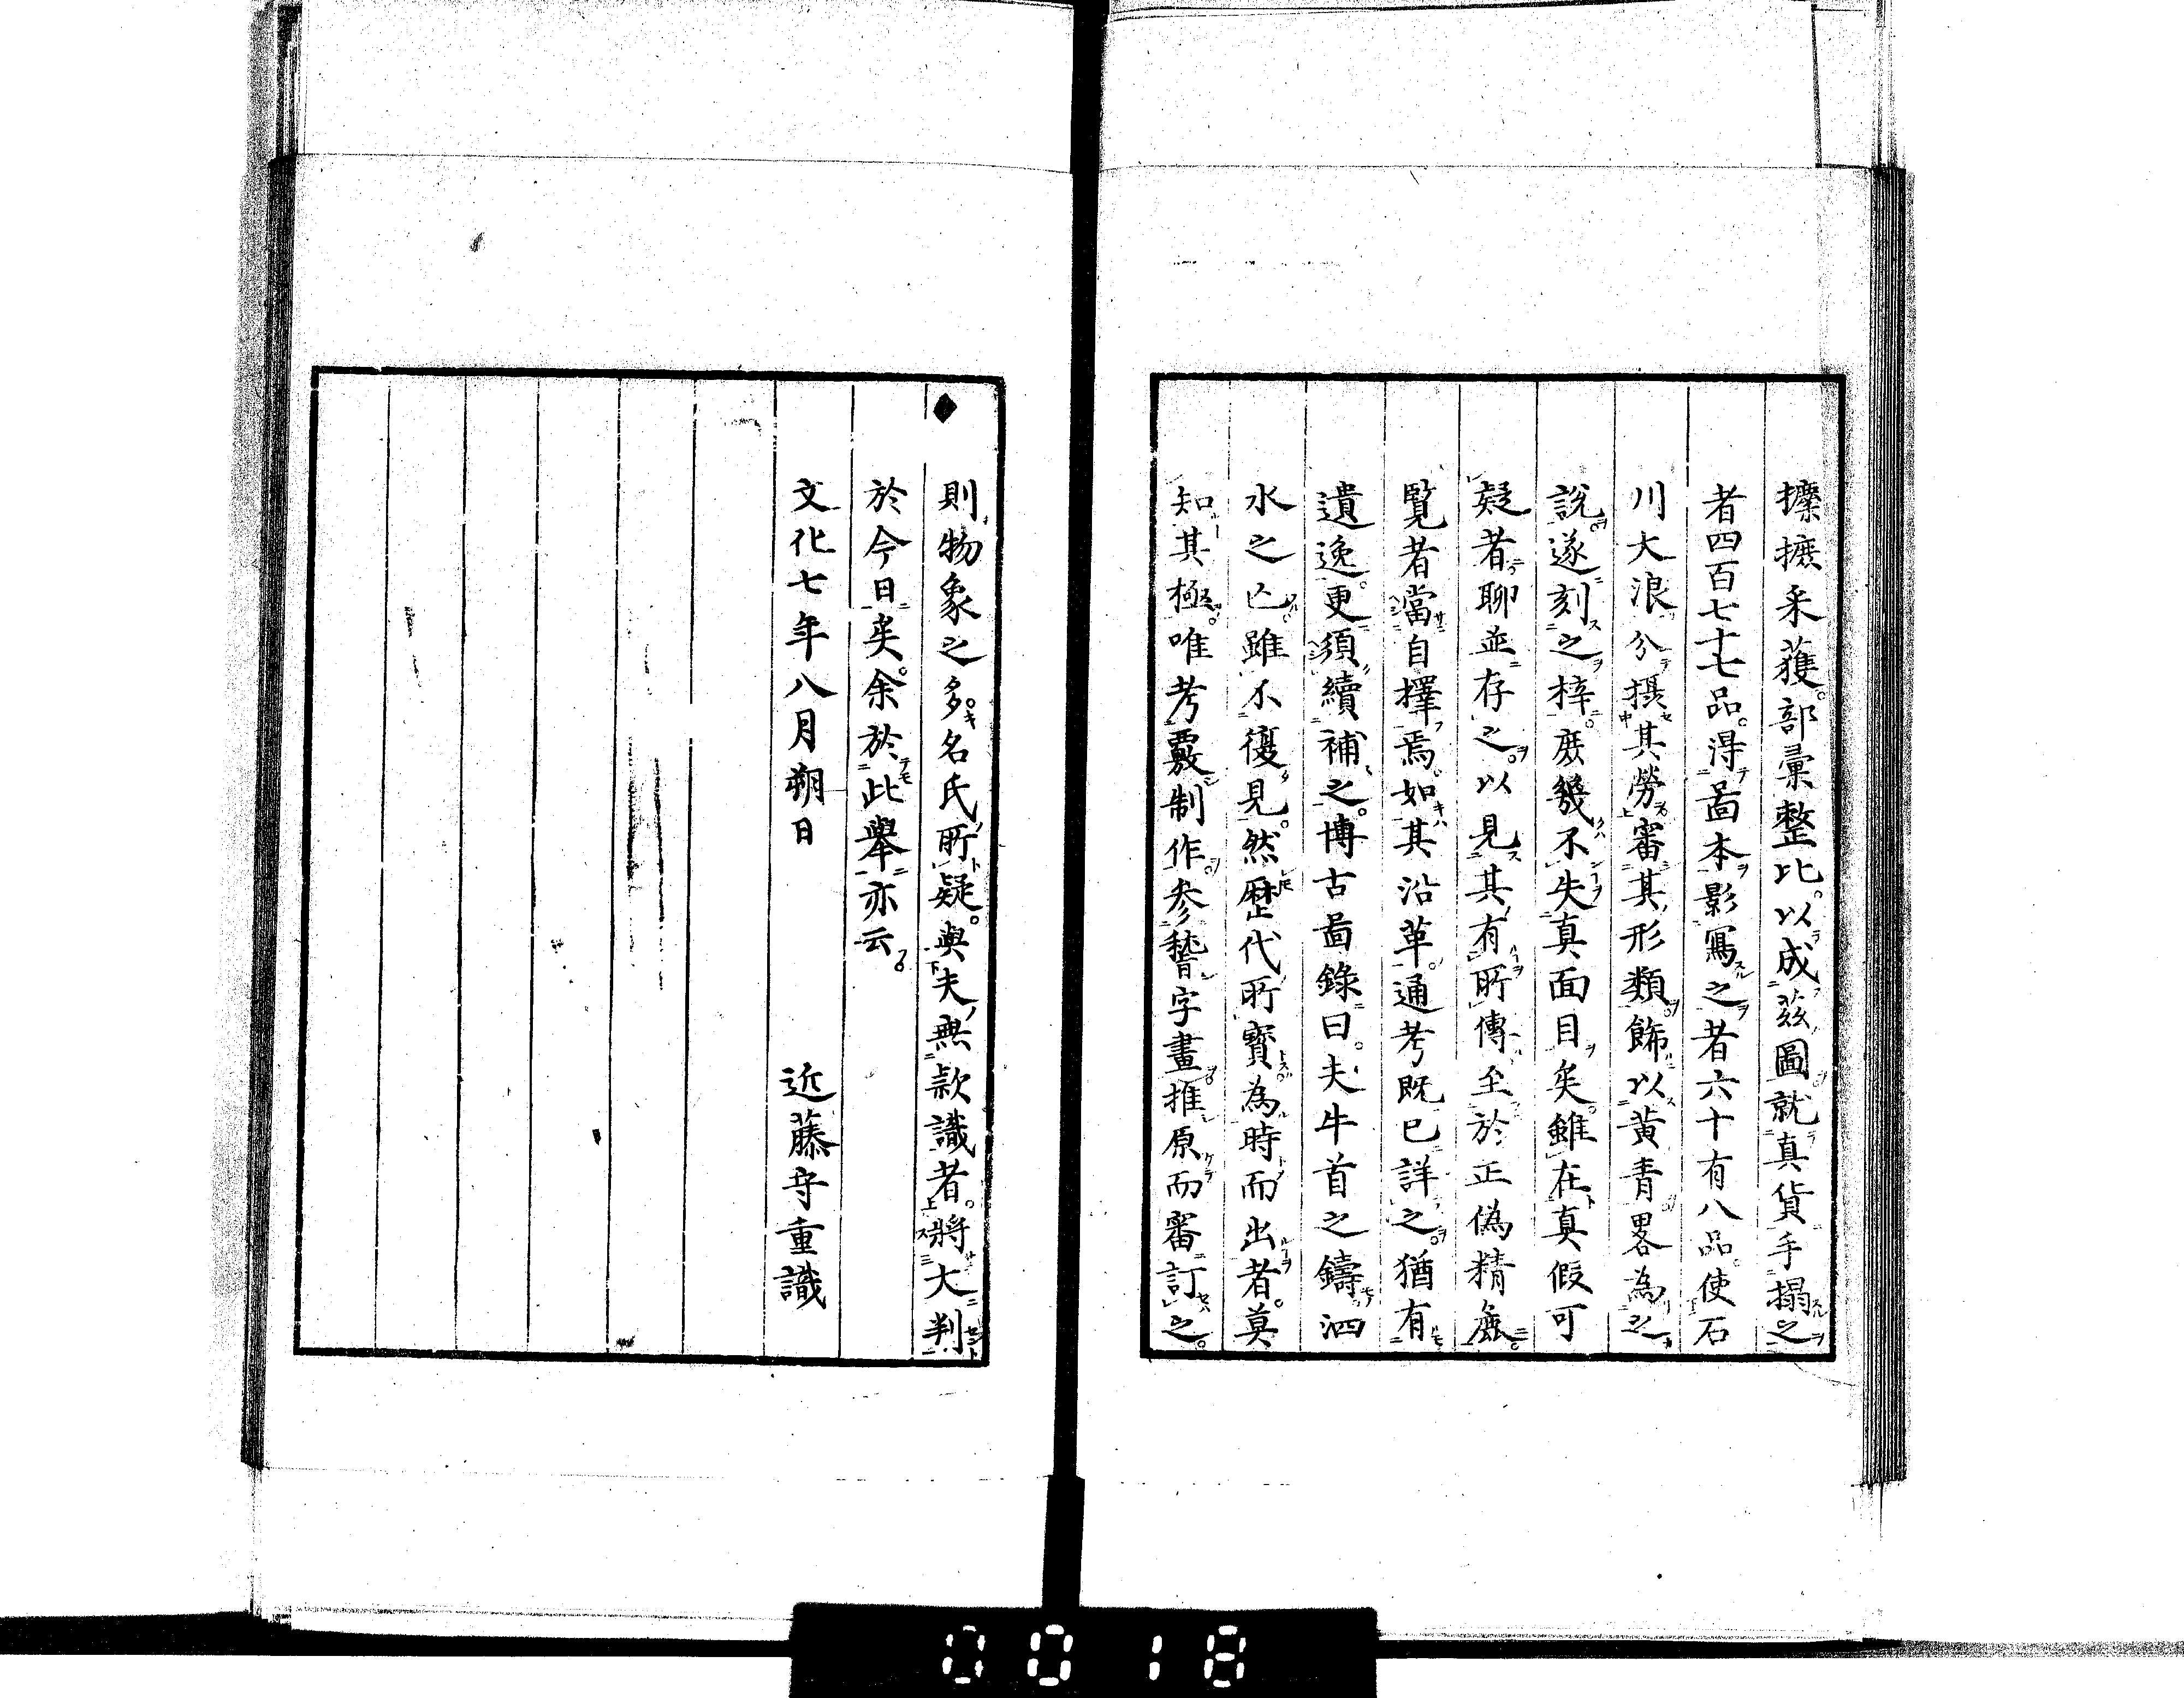 擽摭采獲部彙整比以成茲圖就真貨手搨之
者四百七十七品得啚本影寫之者六十有八品使石
川大浪分摂其勞審其形類飾以黃青畧為之
説遂刻之梓庶幾不失真面目矣雖在真假可
疑者聊並存之以見其有所傳至於正偽精麁
覧者當自擇焉如其沿革通考既已詳之猶有
遺逸更須續補之博古啚錄曰夫牛首之鑄泗
水之亡雖不復見然歴代所寳為時而出者莫
知其極唯考覈制作參稽字畫推原而審訂之
則物象之多名氏所疑與夫無款識者將大判
於今日矣余於此舉亦云
文化七年八月朔日
近藤守重識
0018